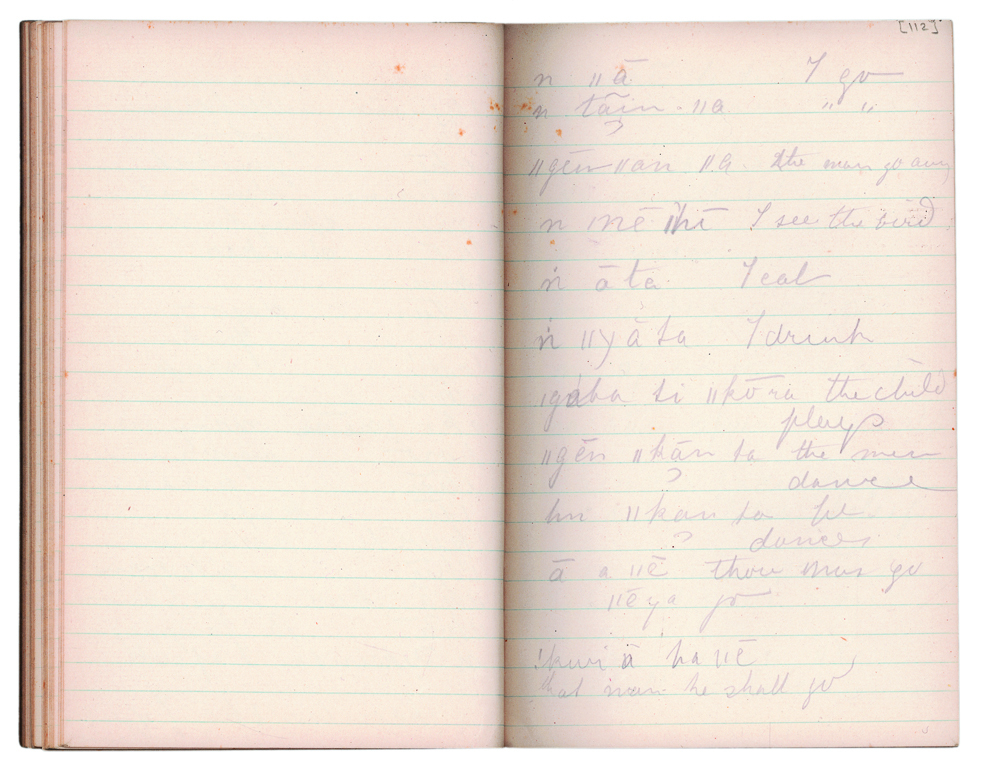 [112]
n ǁā I go
n tāin ǁa " "
?
ǁgēn ǁan ǁa the man go away
n mē I see the bird
ṅ āta I eat
ṅ ǁyāta I drink
ǀgaba si ǁkōra the child
plays
ǁgēn ǁkān ta the men
? dance
ǁkan ta he
? dances
ā a ǁē thou mus go
ǁēya go
!kwi ā ha ǁē
that man he shall go